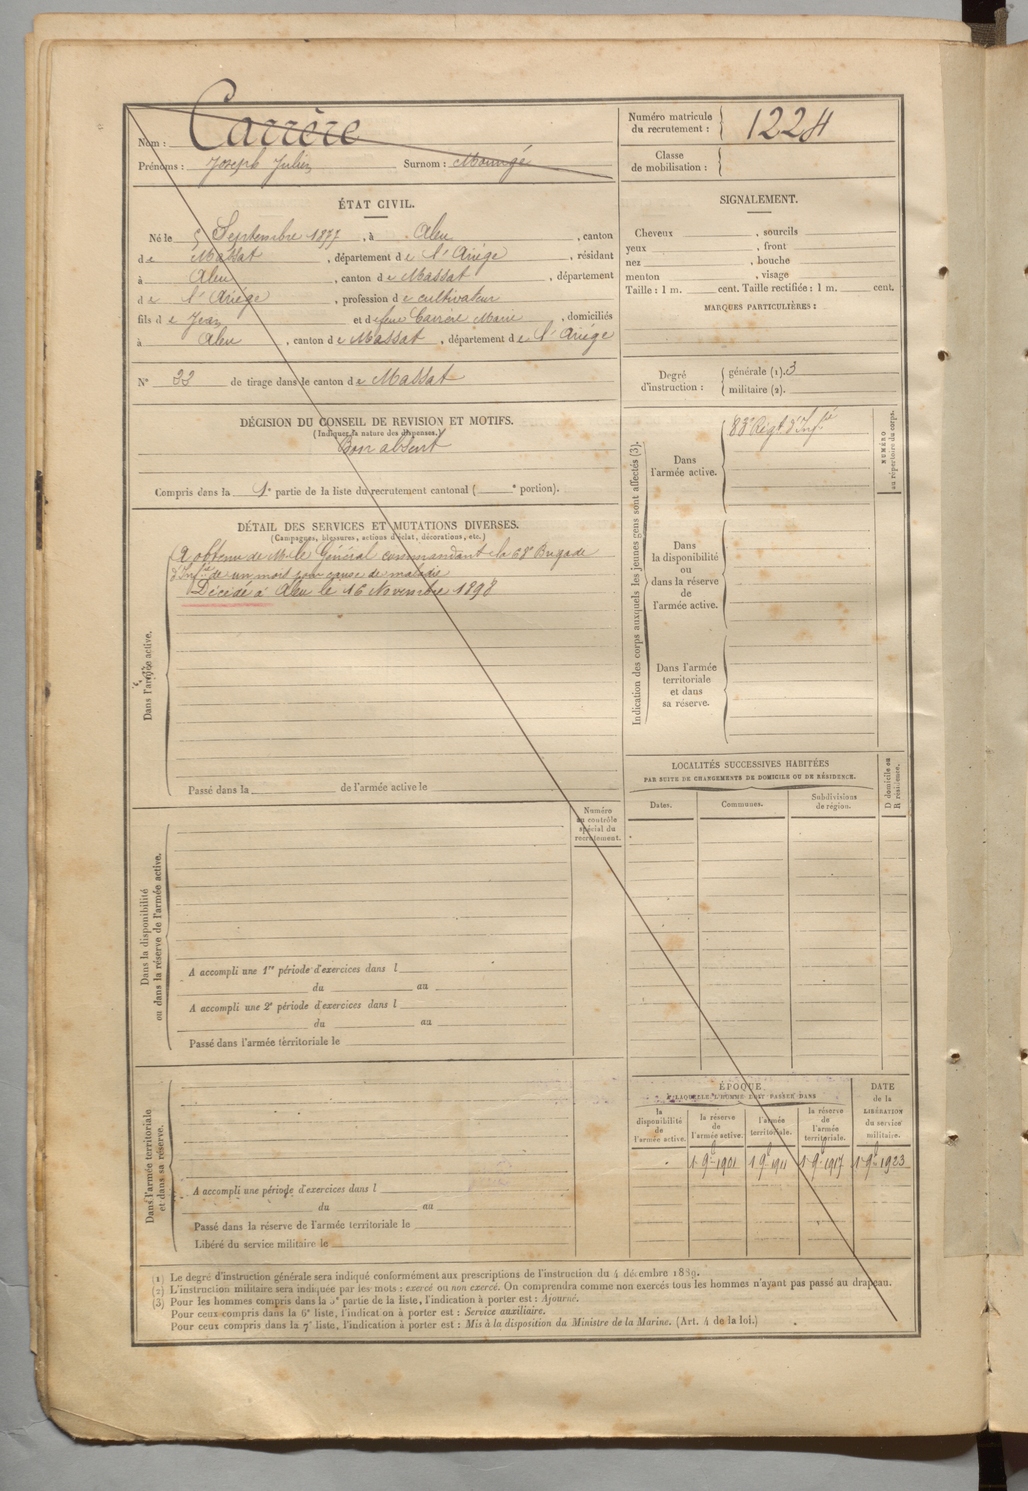 Nom : Carrère
Prénoms : Joseph Julien Surnom :
Numéro matricule
du recrutement : 1224
Classe
de mobilisation :
ÉTAT CIVIL.
Né le 5 Septembre 1877, à Aleu, canton
de Massat, département de l'Ariége, résidant
à Aleu, canton de Massat, département
de l'Ariége, profession de cultivateur
fils de Jean et de feue Carrère Marie, domiciliés
à Aleu, canton de Massat, département de l'Ariége
N° 22 de tirage dans le canton de Massat
SIGNALEMENT.
Cheveux , sourcils
yeux , front
nez , bouche
menton , visage
Taille : 1 m. cent. Taille rectifiée : 1 m. cent.
MARQUES PARTICULIÈRES :
Degré
d'instruction :
générale (1). 3
militaire (2).
DÉCISION DU CONSEIL DE REVISION ET MOTIFS.
(Indiquer la nature des dispenses.)
Bon absent
Compris dans la 1e partie de la liste du recrutement cantonal ( e portion).
DÉTAIL DES SERVICES ET MUTATIONS DIVERSES.
(Campagnes, blessures, actions d'éclat, décorations, etc.)
Dans l'armée active.
A obtenu de M. le Général commandant la 68e Brigade
d'Infie de un mois pour cause de maladie
Décédé à Aleu le 16 Novembre 1898
Passé dans la de l'armée active le
Indication des corps auxquels les jeunes gens sont affectés (3).
NUMÉRO
au répertoire du corps.
Dans
l'armée active.
83e Régt d'Infie
Dans
la disponibilité
ou
dans la réserve
de
l'armée active.
Dans l'armée
territoriale
et dans
sa réserve.
LOCALITÉS SUCCESSIVES HABITÉES
PAR SUITE DE CHANGEMENTS DE DOMICILE OU DE RÉSIDENCE.
Dates.
Communes.
Subdivisions
de région.
D domicile ou
R résidence.
Numéro
au contrôle
spécial du
recrutement.
Dans la disponibilité
ou dans la réserve de l'armée active.
A accompli une 1re période d'exercices dans l
du au
A accompli une 2e période d'exercices dans l
du au
Passé dans l'armée territoriale le
Dans l'armée territoriale
et dans sa réserve.
A accompli une période d'exercices dans l
du au
Passé dans la réserve de l'armée territoriale le
Libéré du service militaire le
ÉPOQUE
À LAQUELLE L'HOMME DOIT PASSER DANS
la
disponibilité
de
l'armée active.
la réserve
de
l'armée active.
l'armée
territoriale.
la réserve
de
l'armée
territoriale.
DATE
de la
LIBÉRATION
du service
militaire.
1 9bre 1901 1 9bre 1911 1 9bre 1917 1 9bre 1923
(1) Le degré d'instruction générale sera indiqué conformément aux prescriptions de l'instruction du 4 décembre 1889.
(2) L'instruction militaire sera indiquée par les mots : exercé ou non exercé. On comprendra comme non exercés tous les hommes n'ayant pas passé au drapeau.
(3) Pour les hommes compris dans la 5e partie de la liste, l'indication à porter est : Ajourné.
Pour ceux compris dans la 6e liste, l'indication à porter est : Service auxiliaire.
Pour ceux compris dans la 7e liste, l'indication à porter est : Mis à la disposition du Ministre de la Marine. (Art. 4 de la loi.)